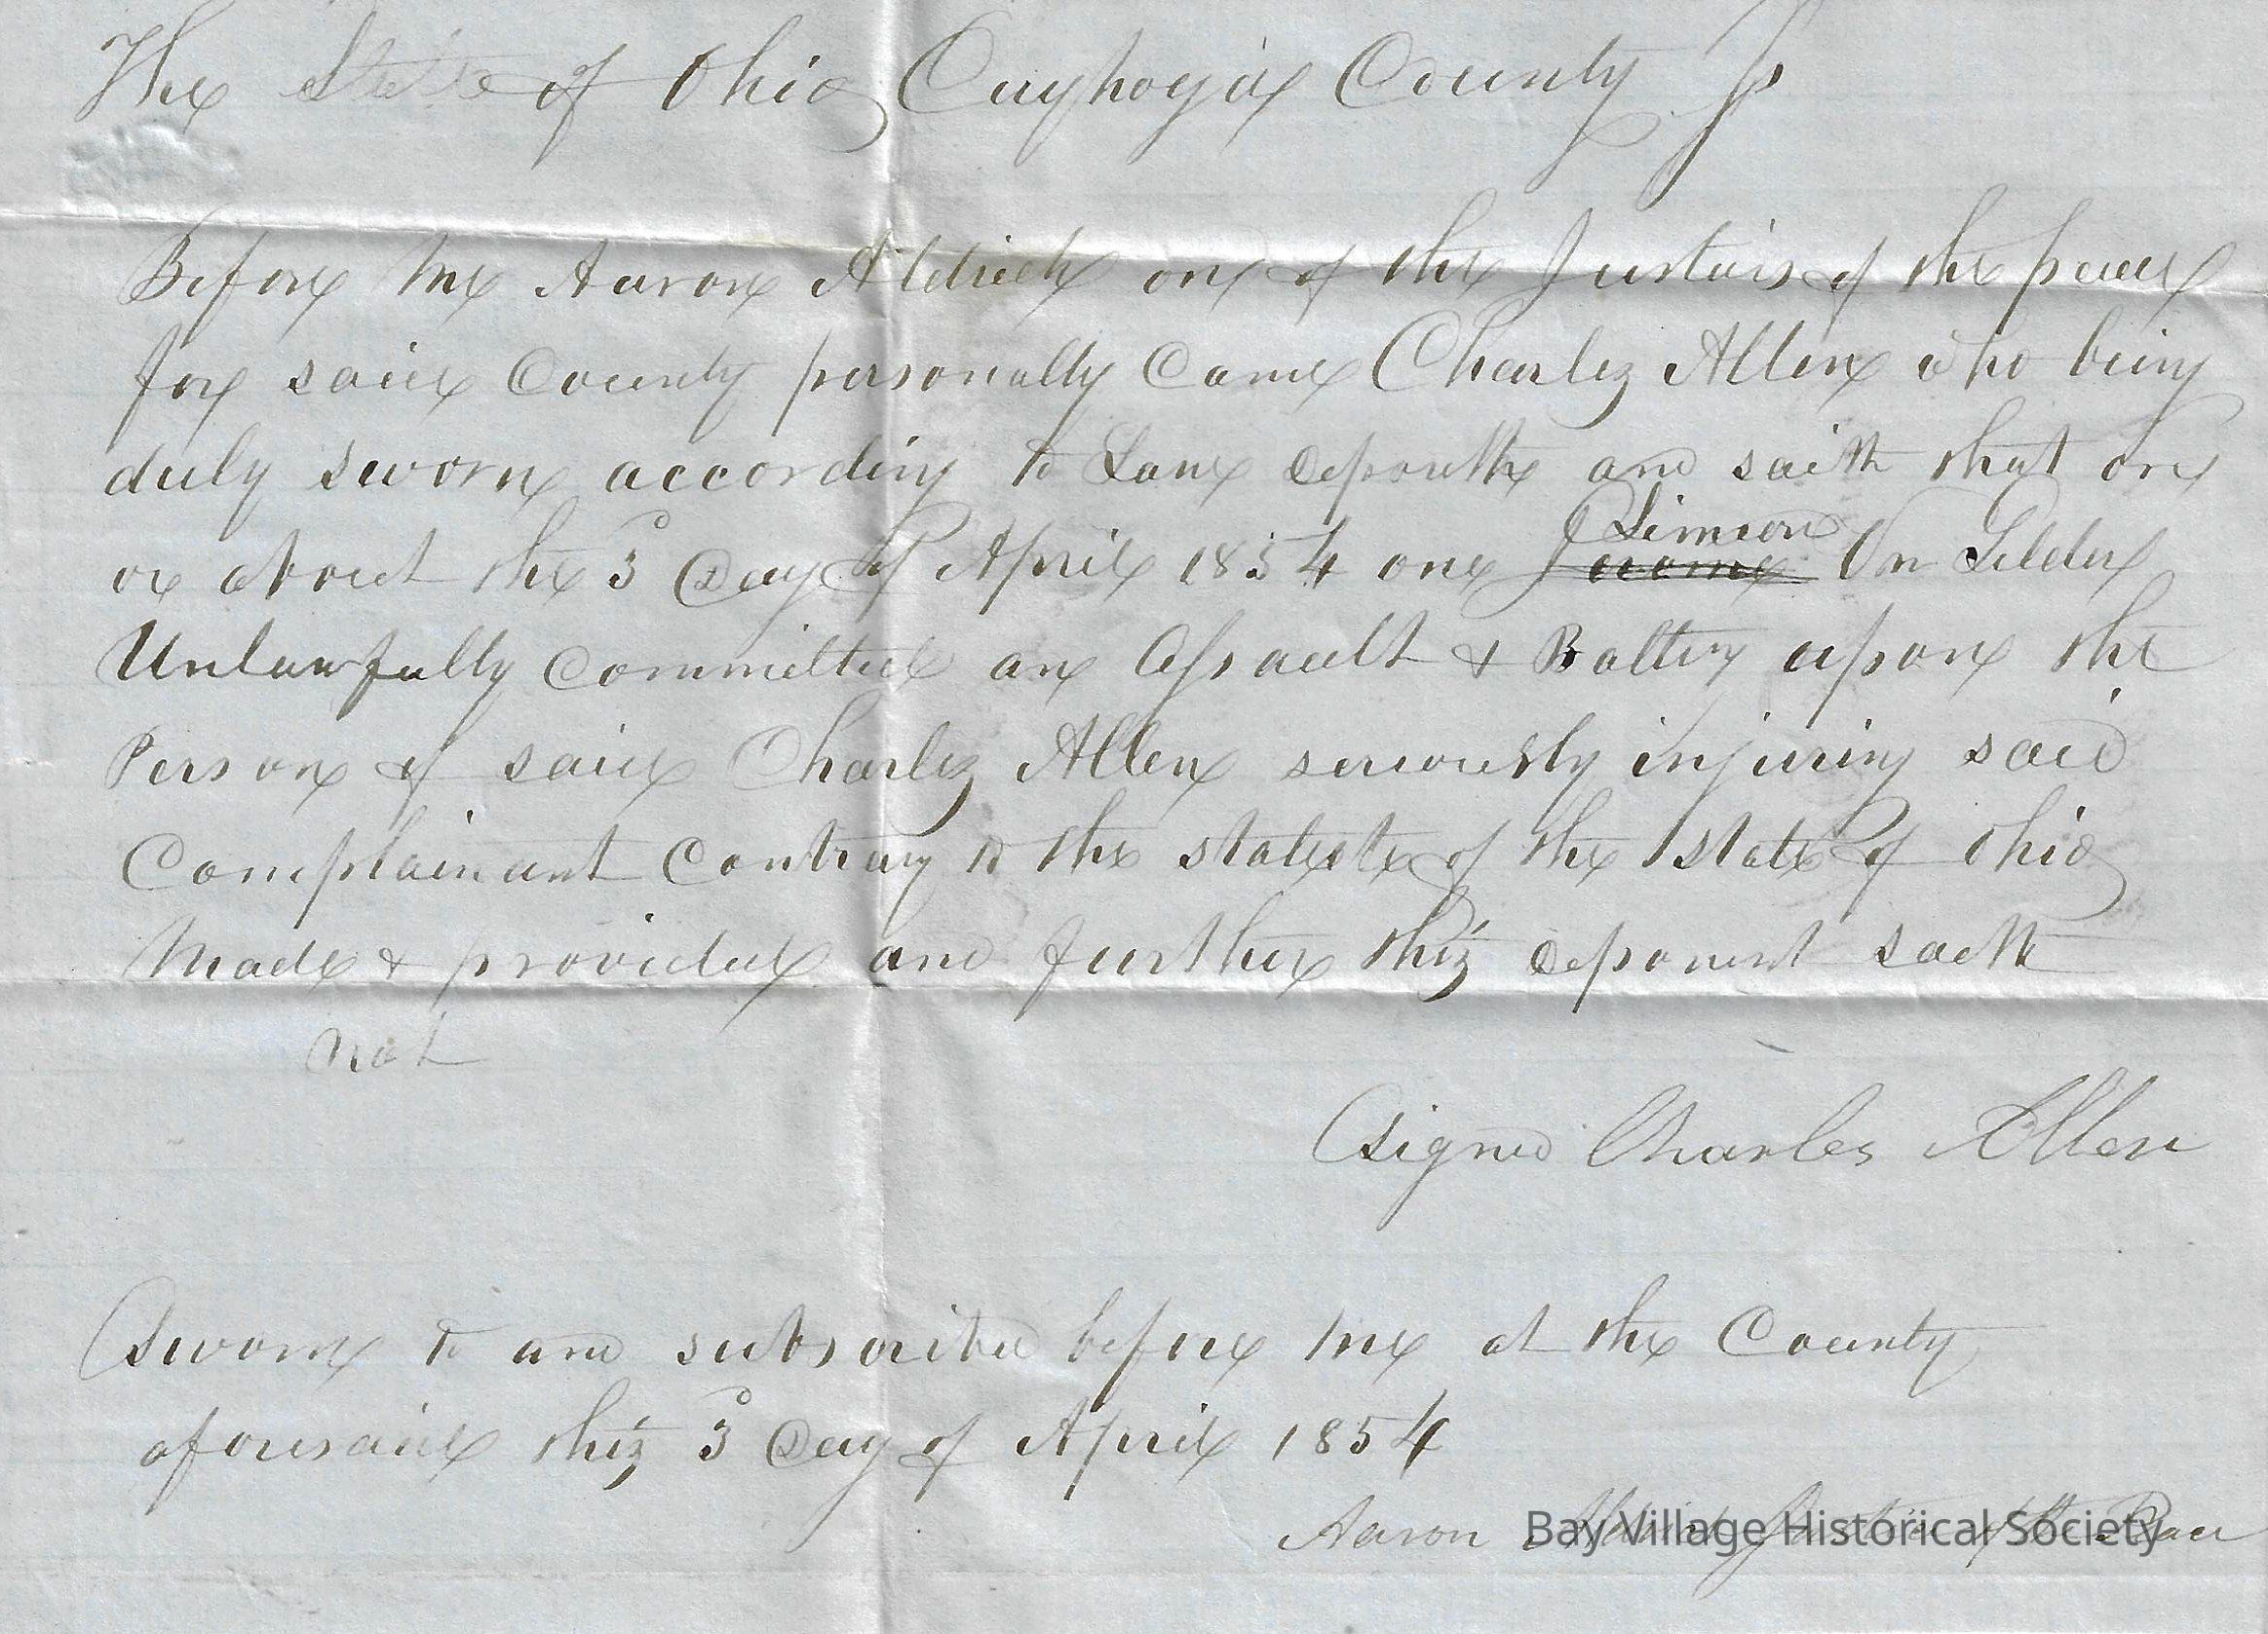 The State of Ohio Cuyhoga County ss
Before Me Aaron Aldrich on of the Justais of the peace
for said County personally Came Charles Allen who being
duly sworn according to Law deposeth and saith that on
Simeon
or about the 3 Day of April 1854 one Jerome Van Gilder
Unlawfully committed an Assault & Battery upon the
Person of said Charles Allen seriously injuring said
Complainant Contrary to the statute of the State of Ohio
Made & provided and further this deponent saeth
not
Signed Charles Allen
Sworn to and subscribed before me at the County
aforesaid this 3 Day of April 1854
Aaron Aldrich Justice of the Peace
Bay Village Historical Society